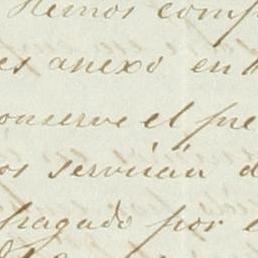 Hemos comp
es anexo en
onserve el pre
os servirán d
fragado por e